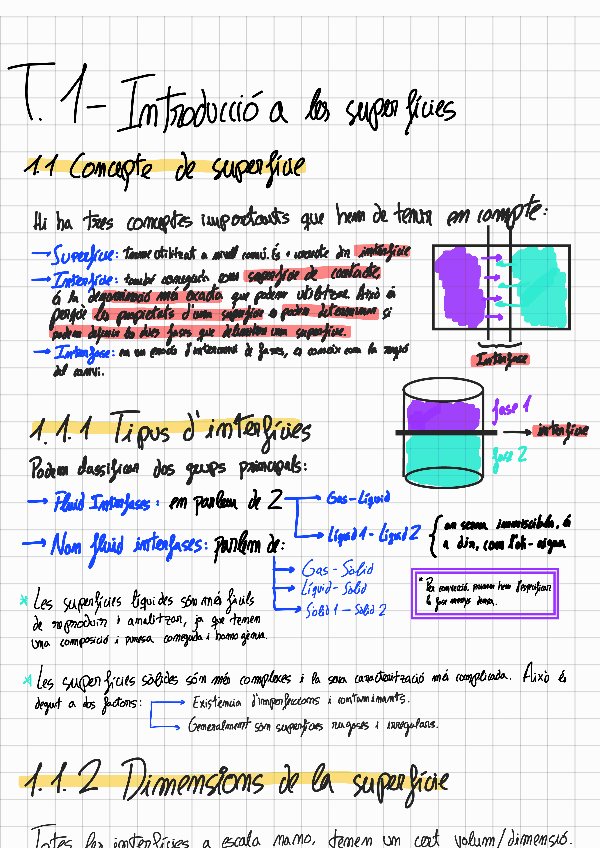 T.1- Introducció a les superfícies
1.1 Concepte de superfície
Hi ha tres conceptes importants que hem de tenir en compte:
→ Superfície: terme utilitzat a nivell comú. És concreta din interfície
→ Interfície: també coneguda com superfície de contacte
és la denominació més exacta que podem utilitzar. Això és
perquè les propietats d'una superfície es poden determinar si
podem definir les dues fases que delimiten una superfície.
→ Interfase: en un procés d'intercanvi de fases, es coneix com la regió
del canvi.
Interfase
fase 1
→ interfície
fase 2
1.1.1 Tipus d'interfícies
Podem classificar dos grups principals:
→ Fluid Interfases: en parlem de 2
→ Gas-Líquid
→ Líquid 1 - Líquid 2
on seran immiscibles, és
a dir, com l'oli-aigua
→ Non fluid interfases: parlem de:
→ Gas - Sòlid
→ Líquid - Sòlid
→ Sòlid 1 - Sòlid 2
* Per convenció, primer hem d'especificar
la fase menys densa.
* Les superfícies líquides són més fàcils
de reproduir i analitzar, ja que tenen
una composició i puresa coneguda i homogènia.
* Les superfícies sòlides són més complexes i la seva caracterització més complicada. Això és
degut a dos factors:
→ Existència d'imperfeccions i contaminants.
→ Generalment són superfícies rugoses i irregulars.
1.1.2 Dimensions de la superfície
Totes les interfícies a escala nano, tenen un cert volum/dimensió.